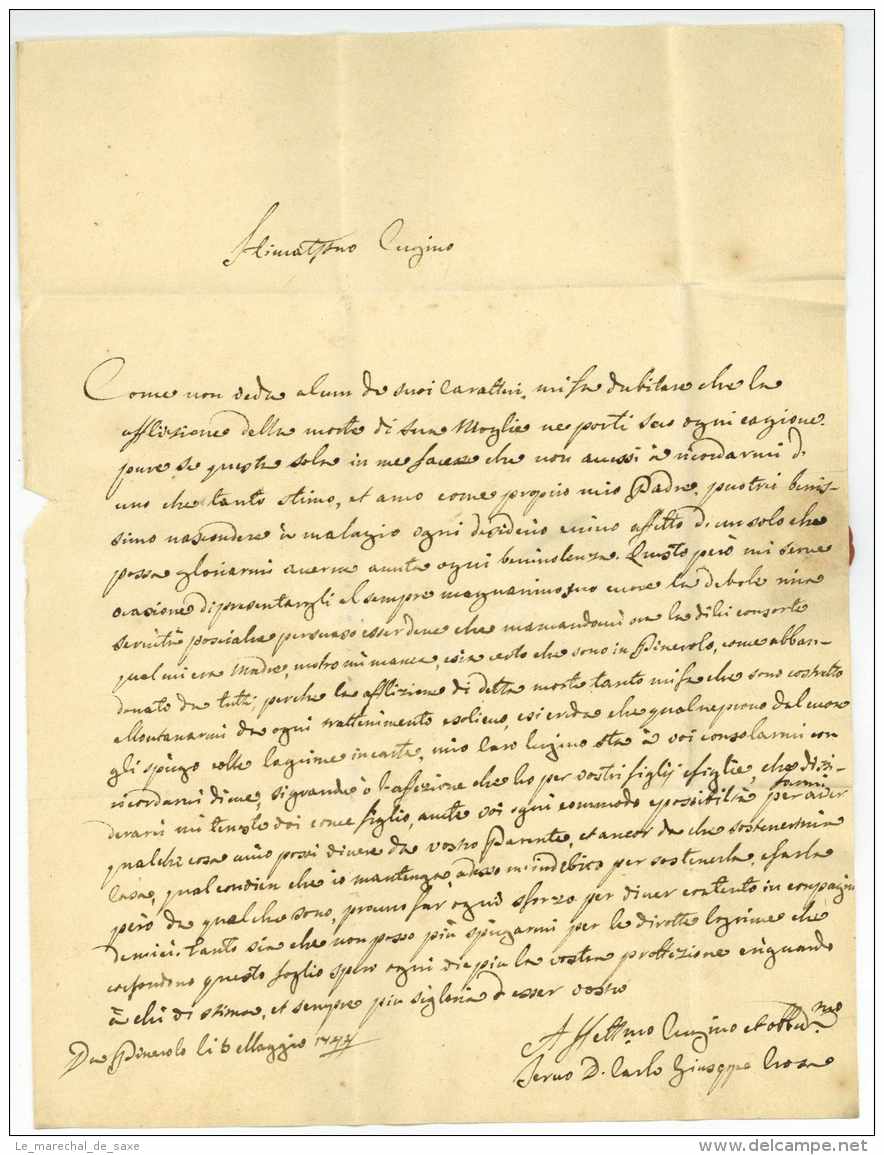 Stimatssmo Cugino
Come non veda alcun de suoi Caratteri, mi fa dubitare che la
afflizione della morte di sua Moglie ne porti seco ogni cagione.
pure se questa sola in me facesse che non avessi à ricordarmi d
uno che tanto stimo, et amo come proprio mio Padre, puotrei benis-
simo nascondere à malagio ogni desiderio affetto d un solo che
possa gloriarmi averne avuta ogni benivolenza. Questo però mi serve
ocasione di presentargli el sempre magnanimo suo cuore la debole mia
servitù persuaso esser che mancandomi ora la di lei consorte
qual mi era Madre, mi manca, e sia certo che sono in Pinerolo, come abban-
donato da tutti, perche la afflizione di detta morte tanto mi fa che sono costretto
allontanarmi da ogni trattenimento e solievo, e si creda che qual neprono dal cuore
gli spiego colle lagrime in carte, mio Caro Cugino sta à voi consolarmi con
ricordarvi di me, riguardo à l'affezione che ho per vostri figlij e figlie, che dizi-
derarei mi teneste voi come figlio, avete voi ogni commodo e possibiltà farmi per aver
qualche cosa acciò possi vivere da vostro Parente, et ancor da che sostenermi
Casa, qual convien che io mantenga adesso m'indebito per sostenerla, e farla
però da qual che sono, procuro far ogni sforzo per viver contento in compagnia
de miei. tanto sia che non posso più spiegarmi per le dirotte lagrime che
confondono questo foglio spero ogni di piu la vostra protezione e riguardo
à chi vi stima, et sempre piu si gloria d esser vostro
Da Pinerolo li 6 Maggio 1777
Affettmo Cugino et obbdmo
Servo D. Carlo Giuseppe Crosa
Le_marechal_de_saxe
www.delcampe.net